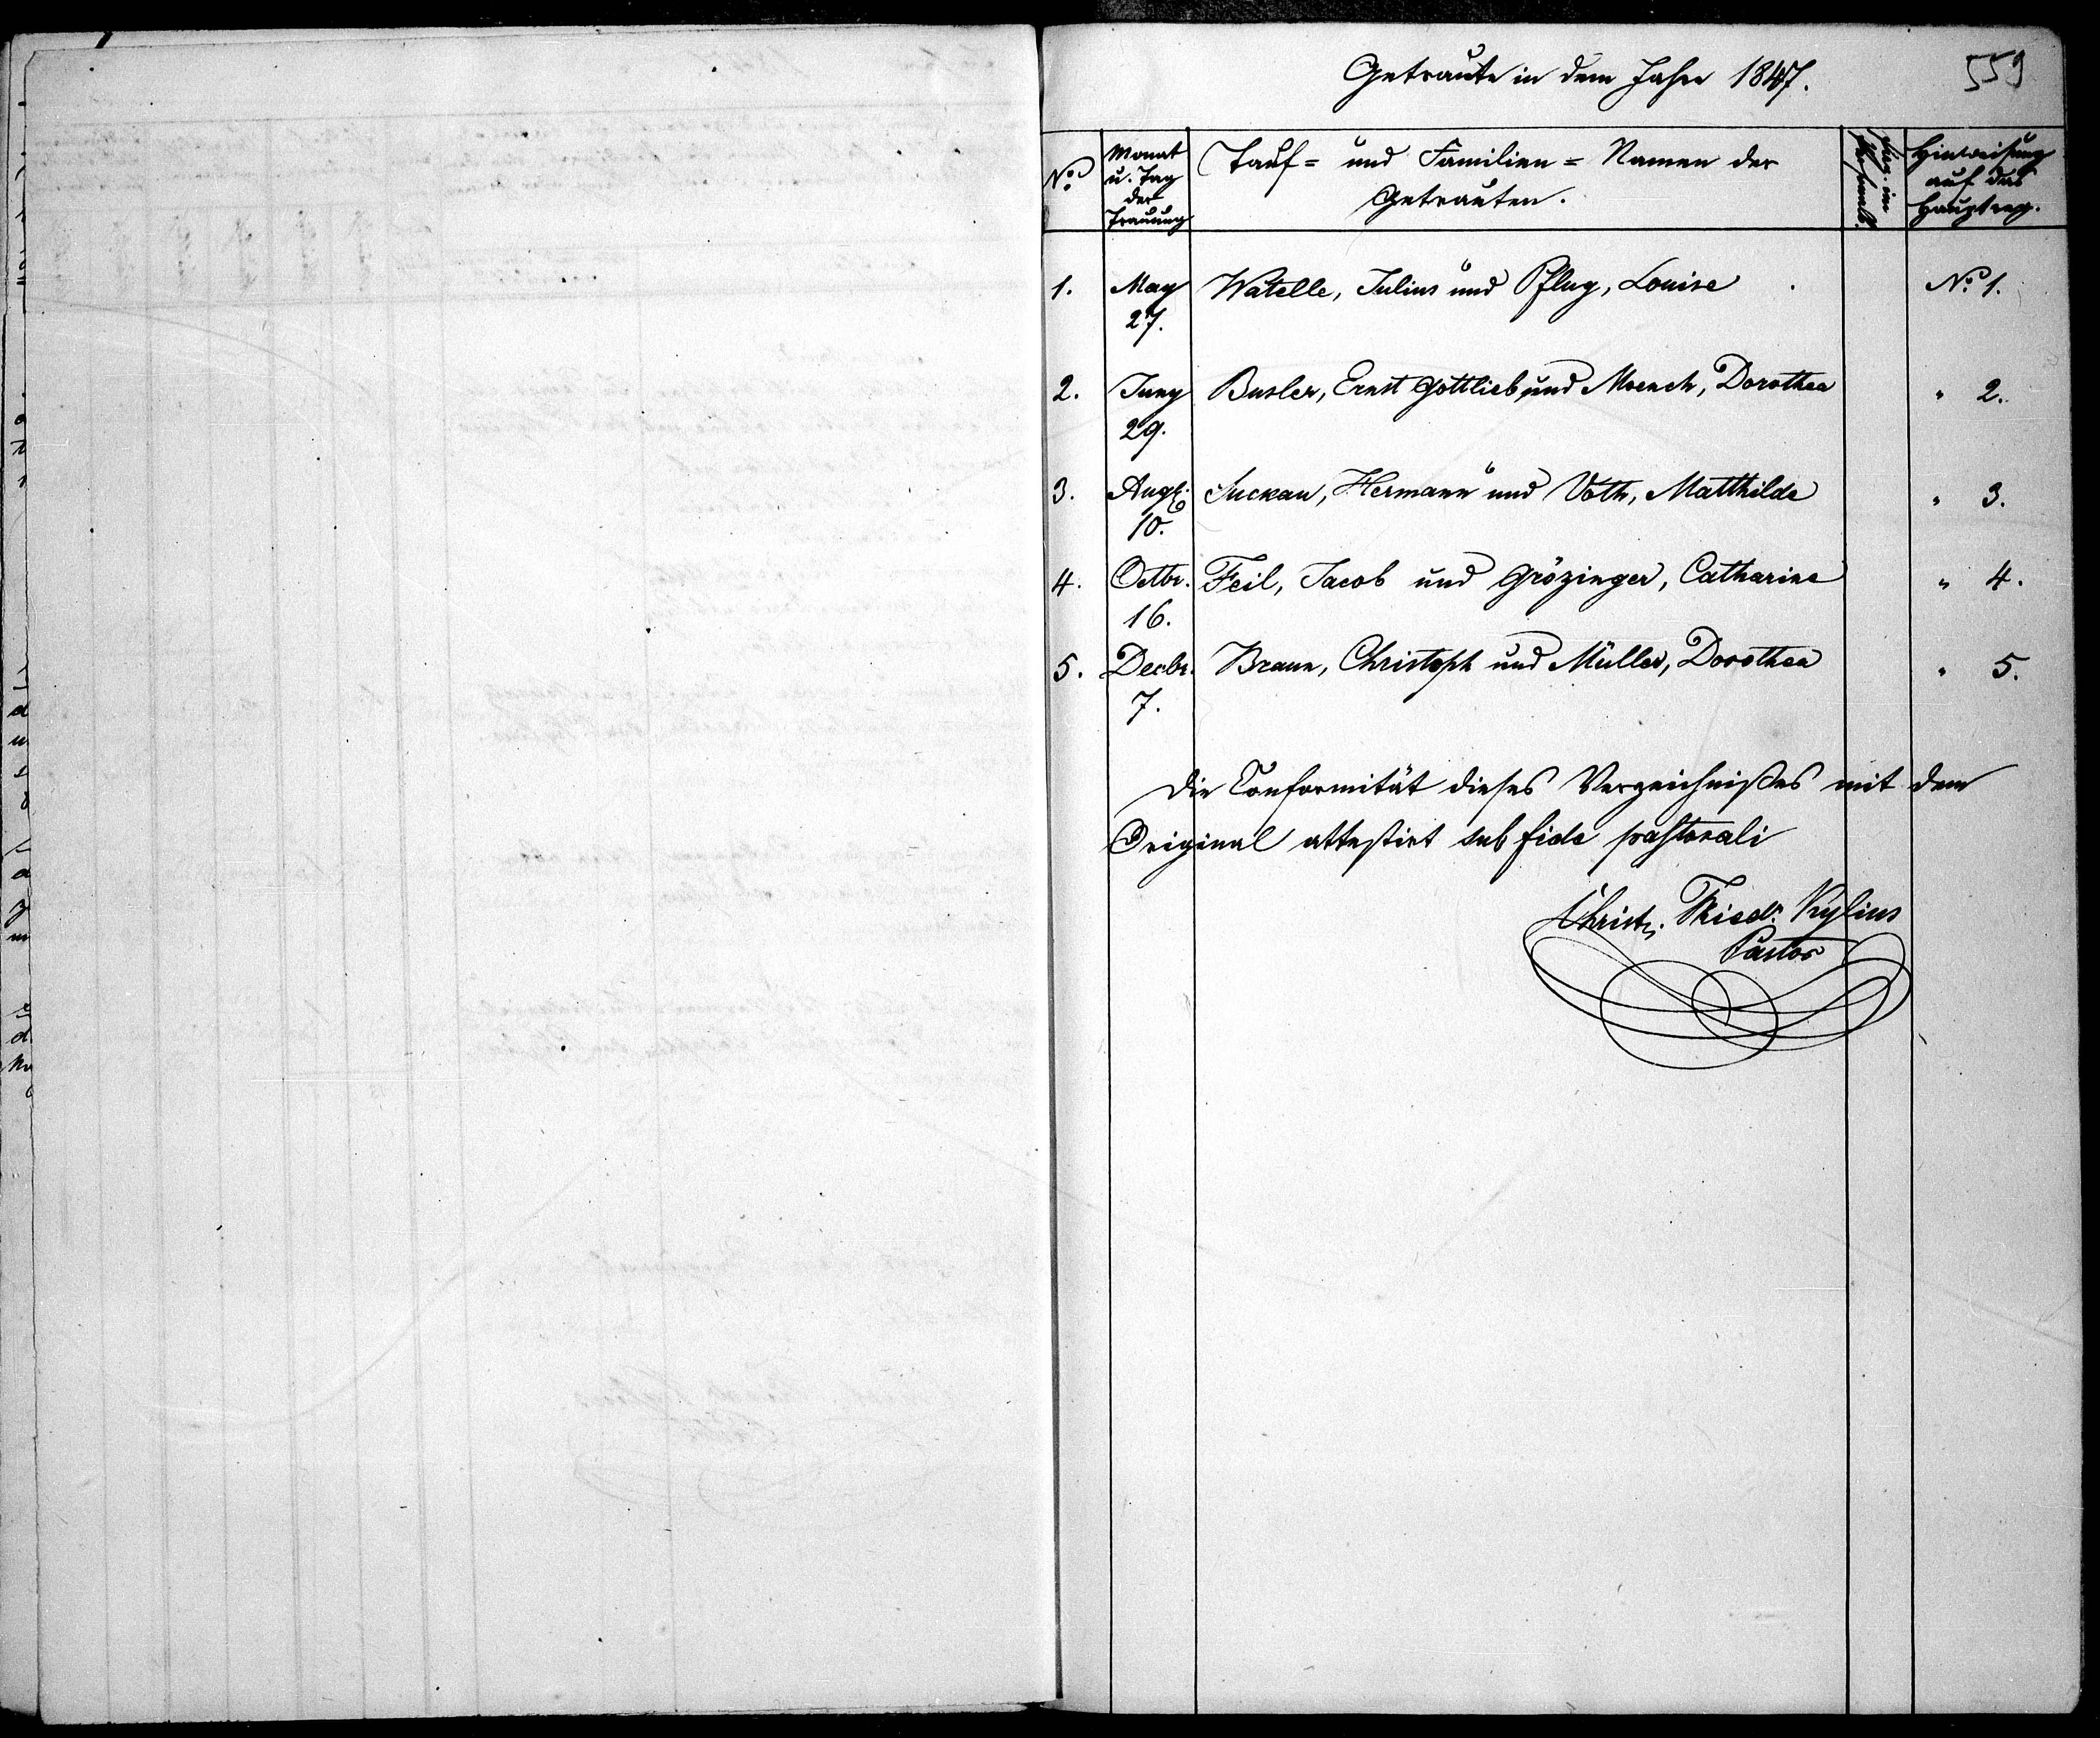 559
Getraute in dem Jahre 1847.
No Monat u. Tag der Trauung Tauf= und Familien= Namen der Getrauten. Hinweisung auf das Hauptreg.
1. May 27. Watelle, Julius und Pflug, Louise No 1.
2. Juny 29. Busler, Ernst Gottlieb und Moench, Dorothea " 2.
3. Augst. 10. Suckau, Hermann und Voth, Matthilde " 3.
4. Octbr. 16. Feil, Jacob und Grözinger, Catharine " 4.
5. Decbr. 7. Braun, Christoph und Müller, Dorothea " 5.
Die Conformität dieses Verzeichnißes mit dem
Original attestirt sub fide pastorali
Christ. Friedr. Kylius
Pastor